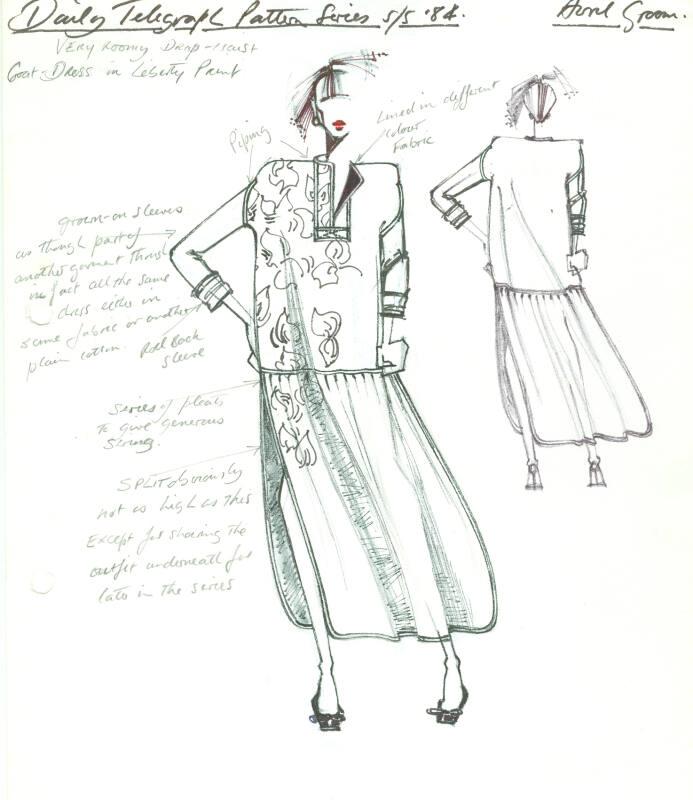 Daily Telegraph Pattern Series S/S '84.
Avril Groom.
Very Roomy Drop-waist
Coat-Dress in Liberty Print
Piping
Lined in different
colour
Fabric
grown-on sleeves
as though part of
another garment
in fact all the same
dress either in
same fabric or another
plain cotton.
Roll Back
sleeve
Series of pleats
to give generous
swing.
SPLIT obviously
not as high as this
Except for showing the
outfit underneath for
later in the series